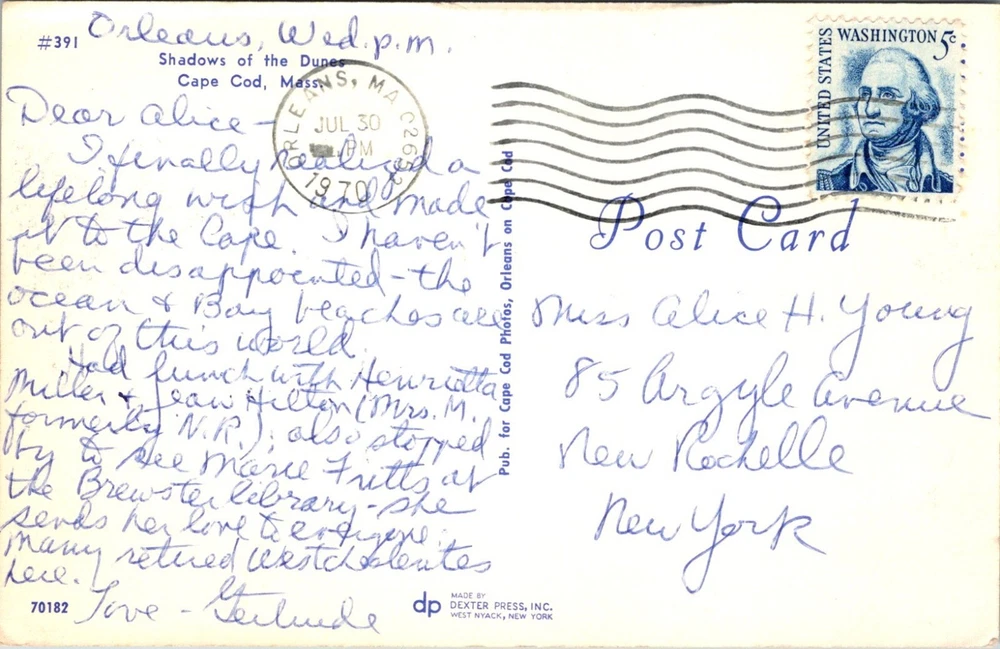 Orleans, Wed. p.m.
#391
Shadows of the Dunes
Cape Cod, Mass.
Dear Alice -
I finally realized a
lifelong wish and made
it to the Cape. I haven't
been disappointed - the
ocean & Bay beaches are
out of this world.
Had lunch with Henrietta
Miller & Jean Hilton (Mrs. M.
formerly N.R.); also stopped
by to see Marie Fritts at
the Brewster library - she
sends her love to everyone.
Many retired Westchesterites
here.
Love - Gertrude
70182
ORLEANS, MA 02653
JUL 30
PM
1970
Pub. for Cape Cod Photos, Orleans on Cape Cod
dp
MADE BY
DEXTER PRESS, INC.
WEST NYACK, NEW YORK
UNITED STATES
WASHINGTON 5c
Post Card
Miss Alice H. Young
85 Argyle Avenue
New Rochelle
New York